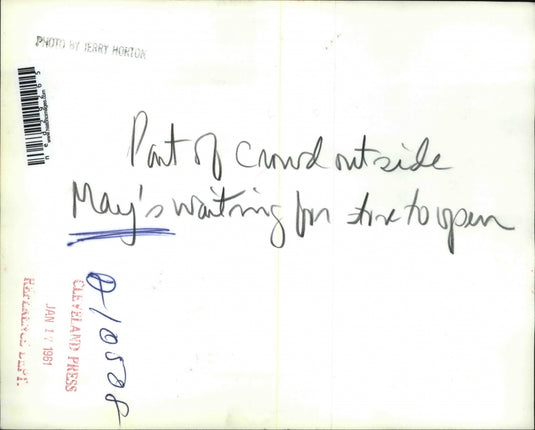 PHOTO BY JERRY HORTON
Part of crowd outside
May's waiting for store to open
CLEVELAND PRESS
JAN 17 1981
REFERENCE DEPT.